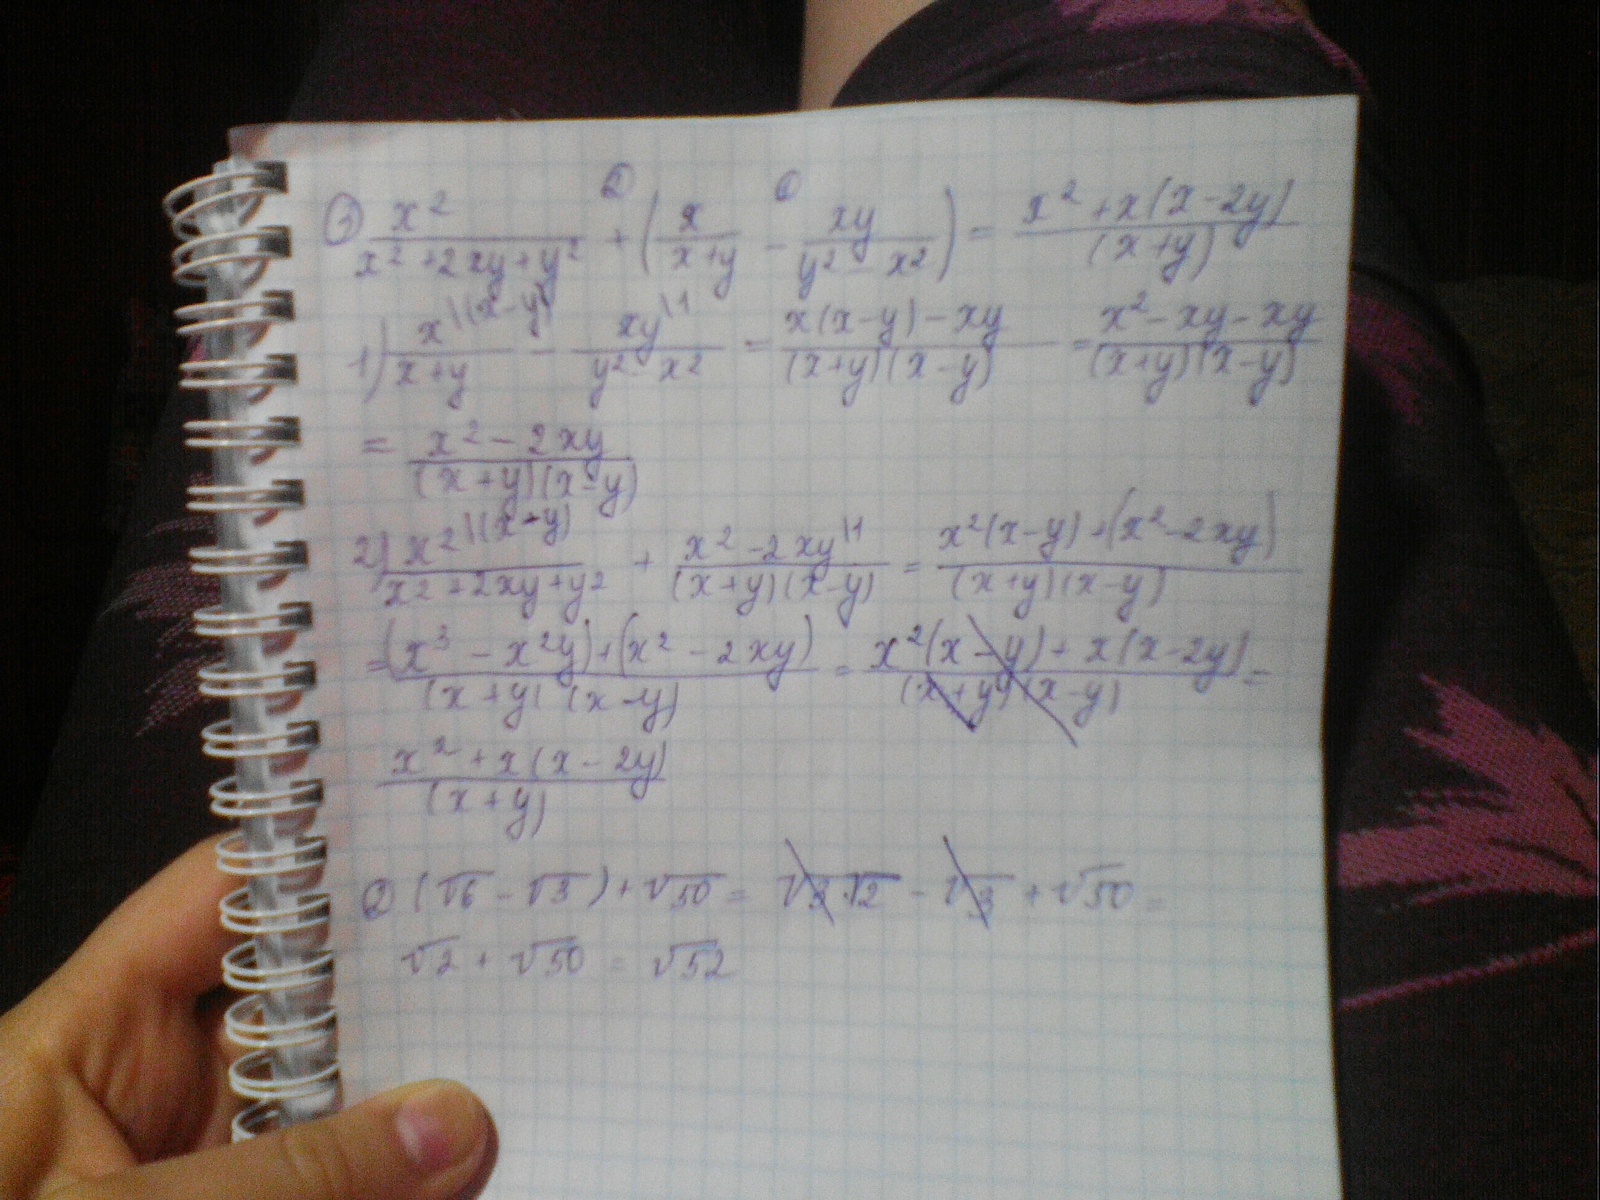 ② ①
③ x²/(x²+2xy+y²) + (x/(x+y) - xy/(y²-x²)) = (x²+x(x-2y))/(x+y)
1) x^{\(x-y)}/(x+y) - xy^{\1}/(y²-x²) = (x(x-y)-xy)/((x+y)(x-y)) = (x²-xy-xy)/((x+y)(x-y))
= (x²-2xy)/((x+y)(x-y))
2) x²^{\(x-y)}/(x²+2xy+y²) + (x²-2xy)^{\1}/((x+y)(x-y)) = (x²(x-y)+(x²-2xy))/((x+y)(x-y))
= ((x³-x²y)+(x²-2xy))/((x+y)(x-y)) = (x²(x-y)+x(x-2y))/((x+y)(x-y)) =
(x²+x(x-2y))/(x+y)
② (√6-√3)+√50 = √3·√2-√3+√50 =
√2+√50 = √52